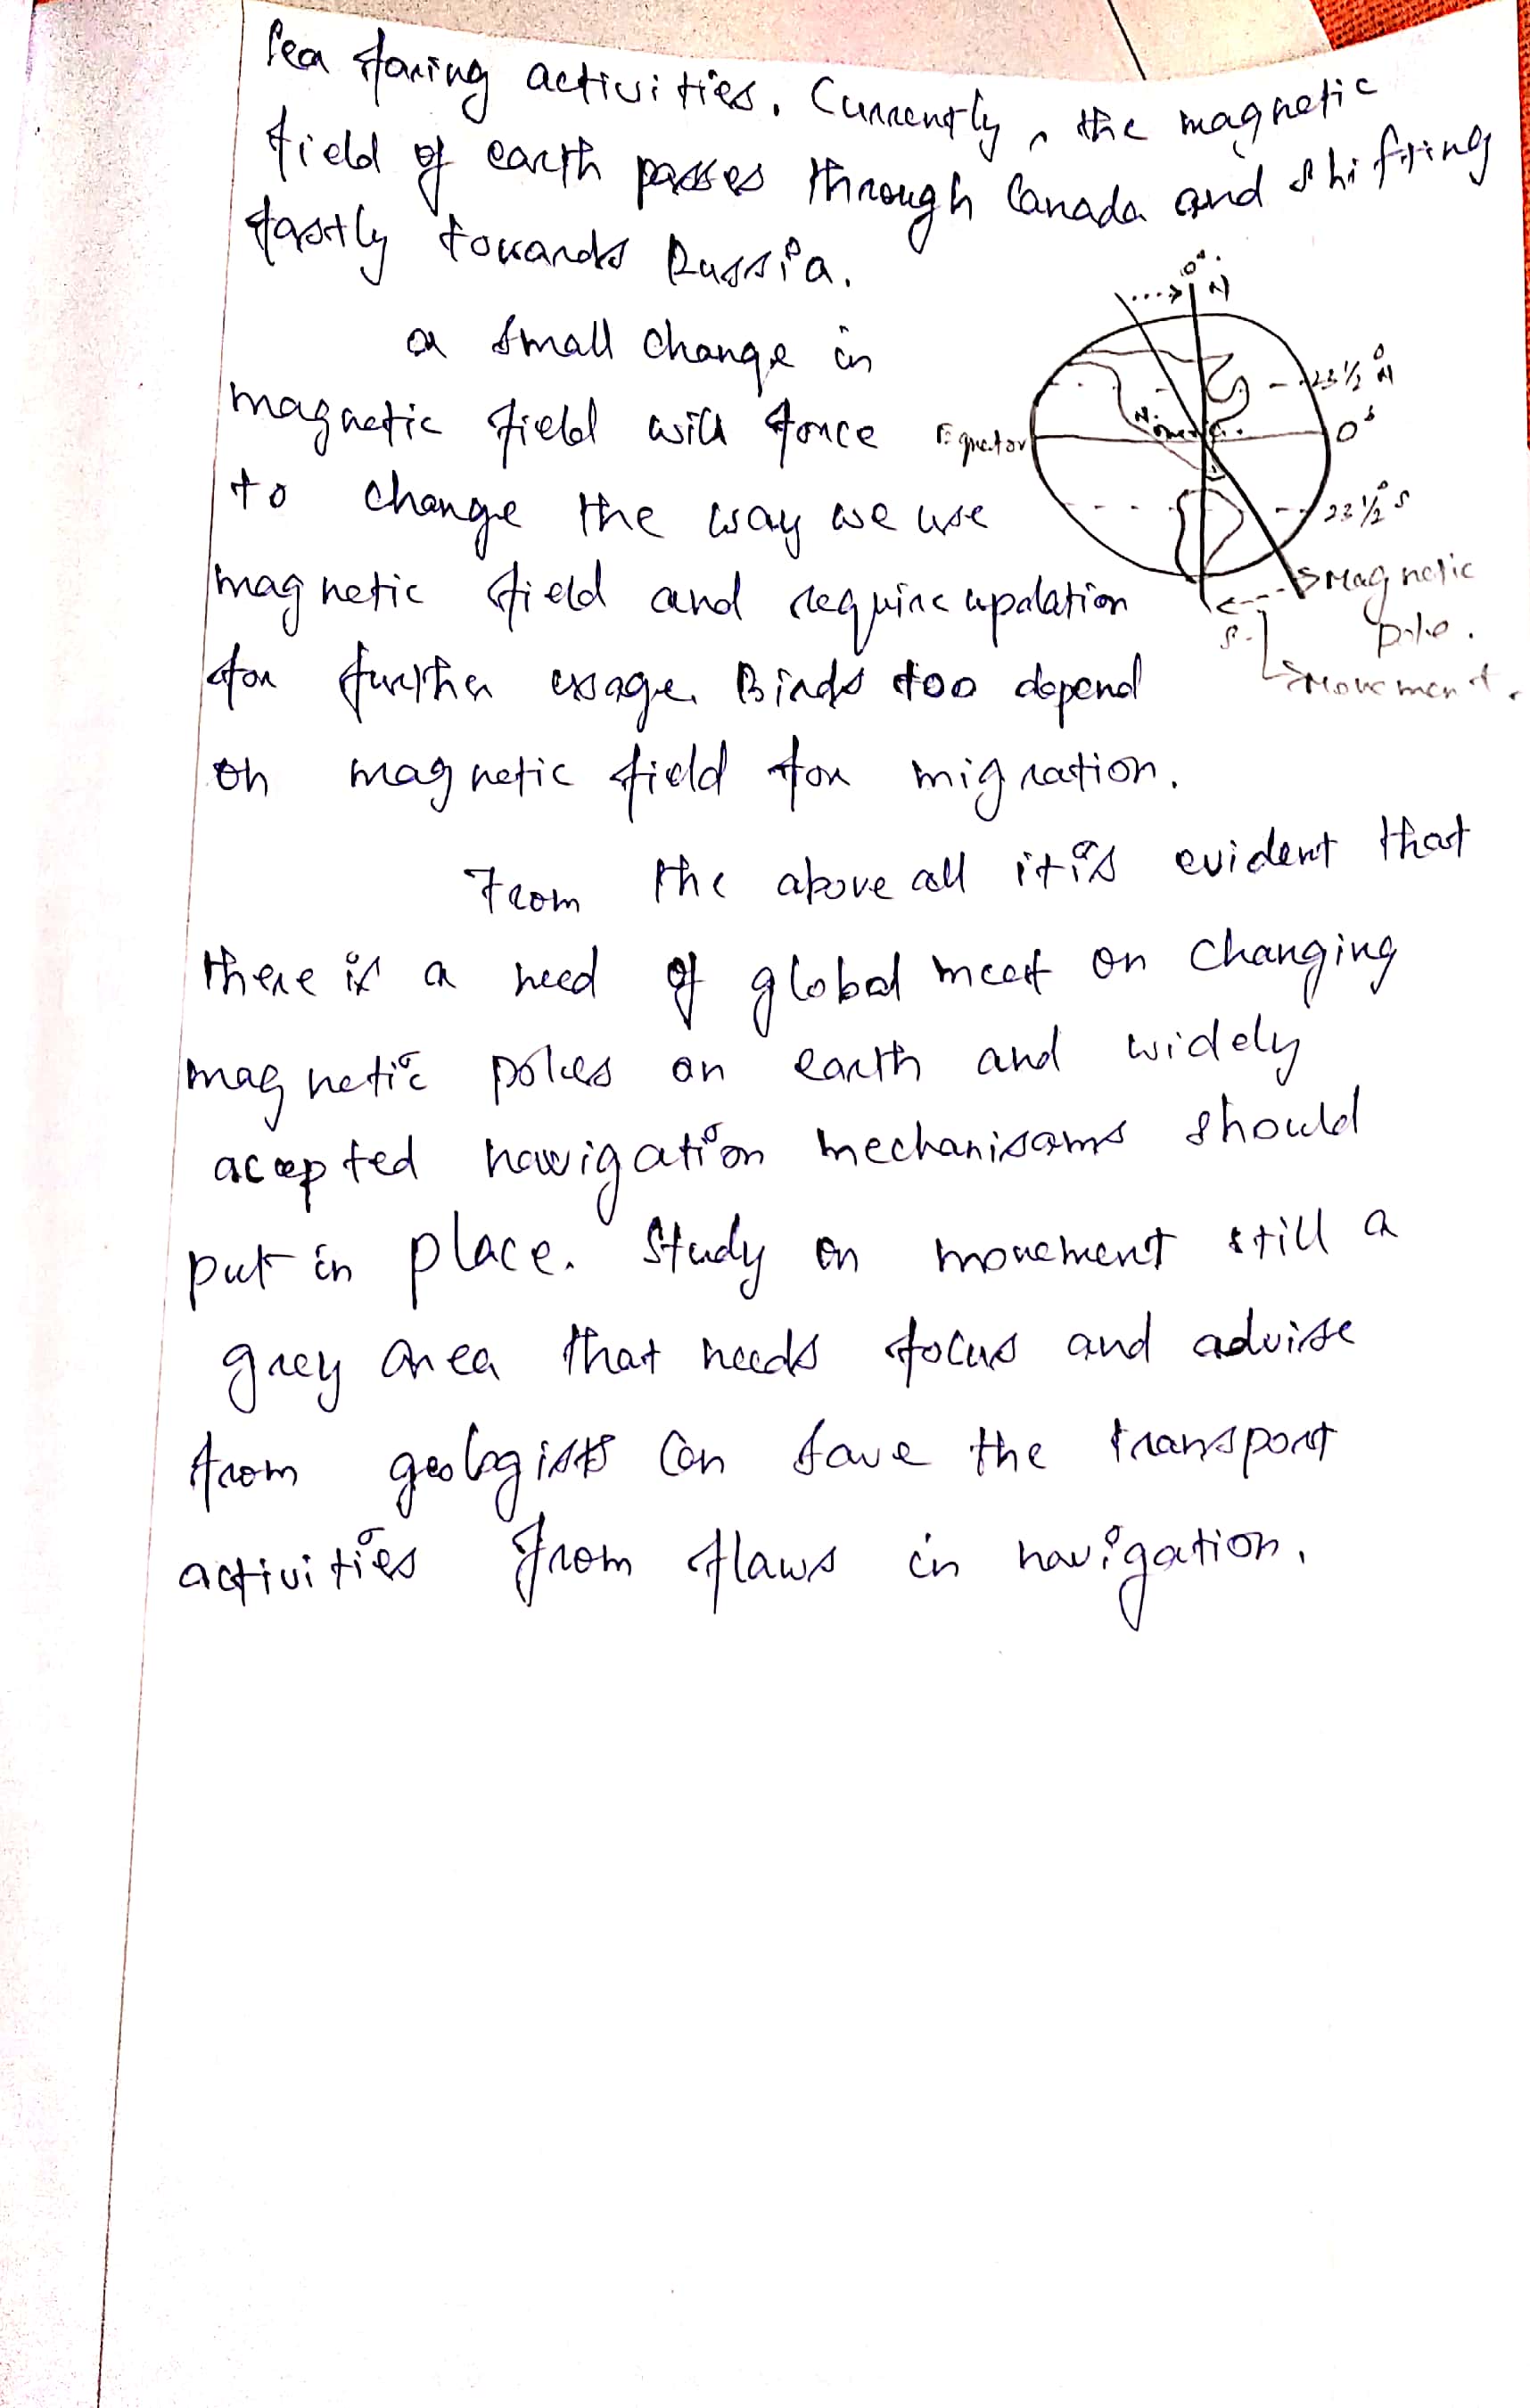 Sea faring activities. Currently, the magnetic
field of earth passes through Canada and shifting
fastly towards Russia.
a small change in
magnetic field will force
to change the way we use
magnetic field and require updation
for further usage. Birds too depend
on magnetic field for migration.
0°
N
23½° N
Equator
0°
N.
23½° S
Magnetic
pole.
S.
Movement.
From the above all it is evident that
there is a need of global meet on changing
magnetic poles on earth and widely
accepted navigation mechanisams should
put in place. Study on movement still a
grey area that needs focus and advise
from geologists can save the transport
activities from flaws in navigation.